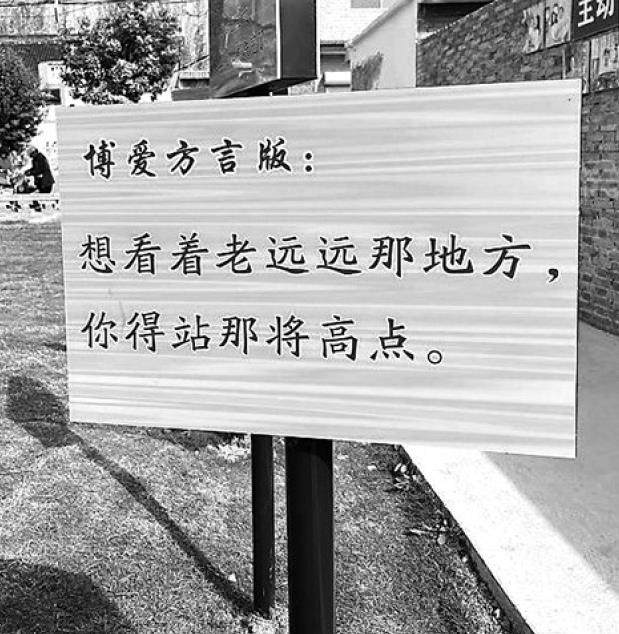 主动
博爱方言版：
想看着老远远那地方，
你得站那将高点。